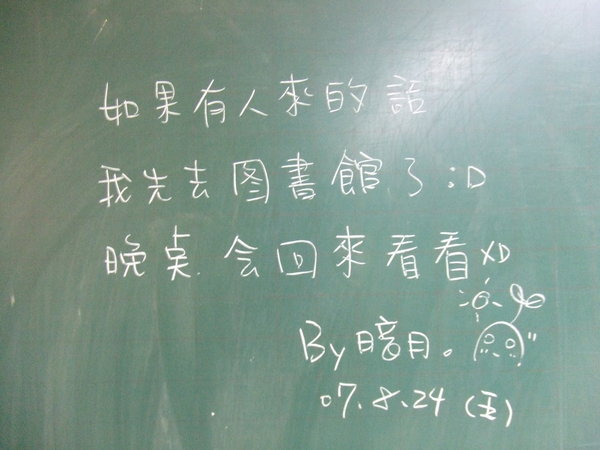 如果有人來的話
我先去图書館了 :D
晚奌会回來看看XD
By 暗月。
07.8.24 (五)